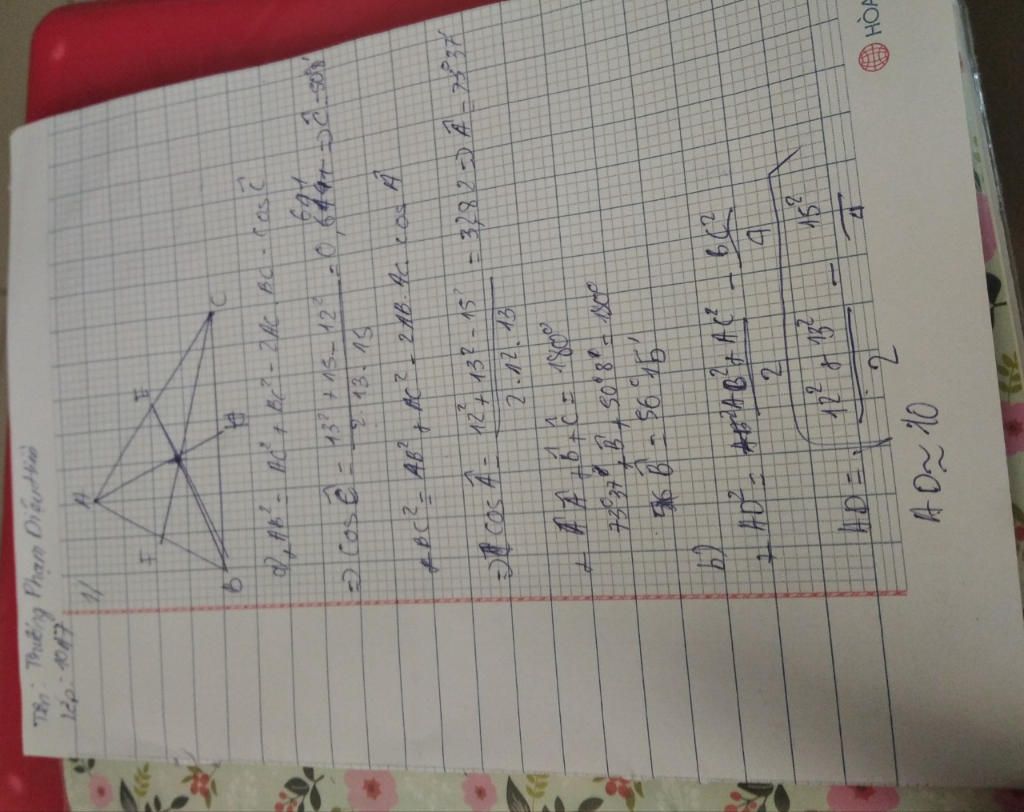 Tên: Trương Phạm Diễm
Lớp: 10A7
1)
A
I
E
B
C
a) + AB² = AC² + BC² - 2AC BC . cos Ĉ
⇒ cos Ĉ = (13² + 15 - 12²) / (2 . 13 . 15) = 0,641 ⇒ Ĉ = 50°8'
+ BC² = AB² + AC² - 2AB. AC. cos Â
⇒ cos  = (12² + 13² - 15²) / (2 . 12 . 13) = 0,282 ⇒  = 73°37'
+ Â + B̂ + Ĉ = 180°
73°37' + B̂ + 50°8' = 180°
B̂ = 56°15'
b)
+ AD² = (AB² + AC²) / 2 - BC² / 4
AD = √((12² + 13²) / 2 - 15² / 4)
AD ≈ 10
HÒA